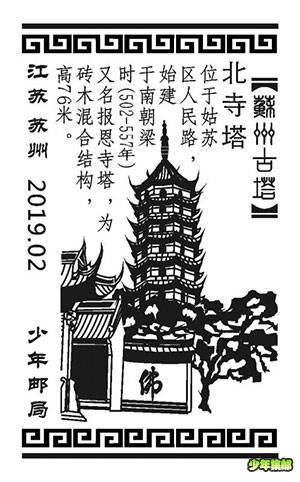 【蘇州古塔】
北寺塔
位于姑苏
区人民路，
始建
于南朝梁
时(502-557年)
又名报恩寺塔，为
砖木混合结构，
高76米。
江苏苏州 2019.02 少年邮局
佛
少年集邮